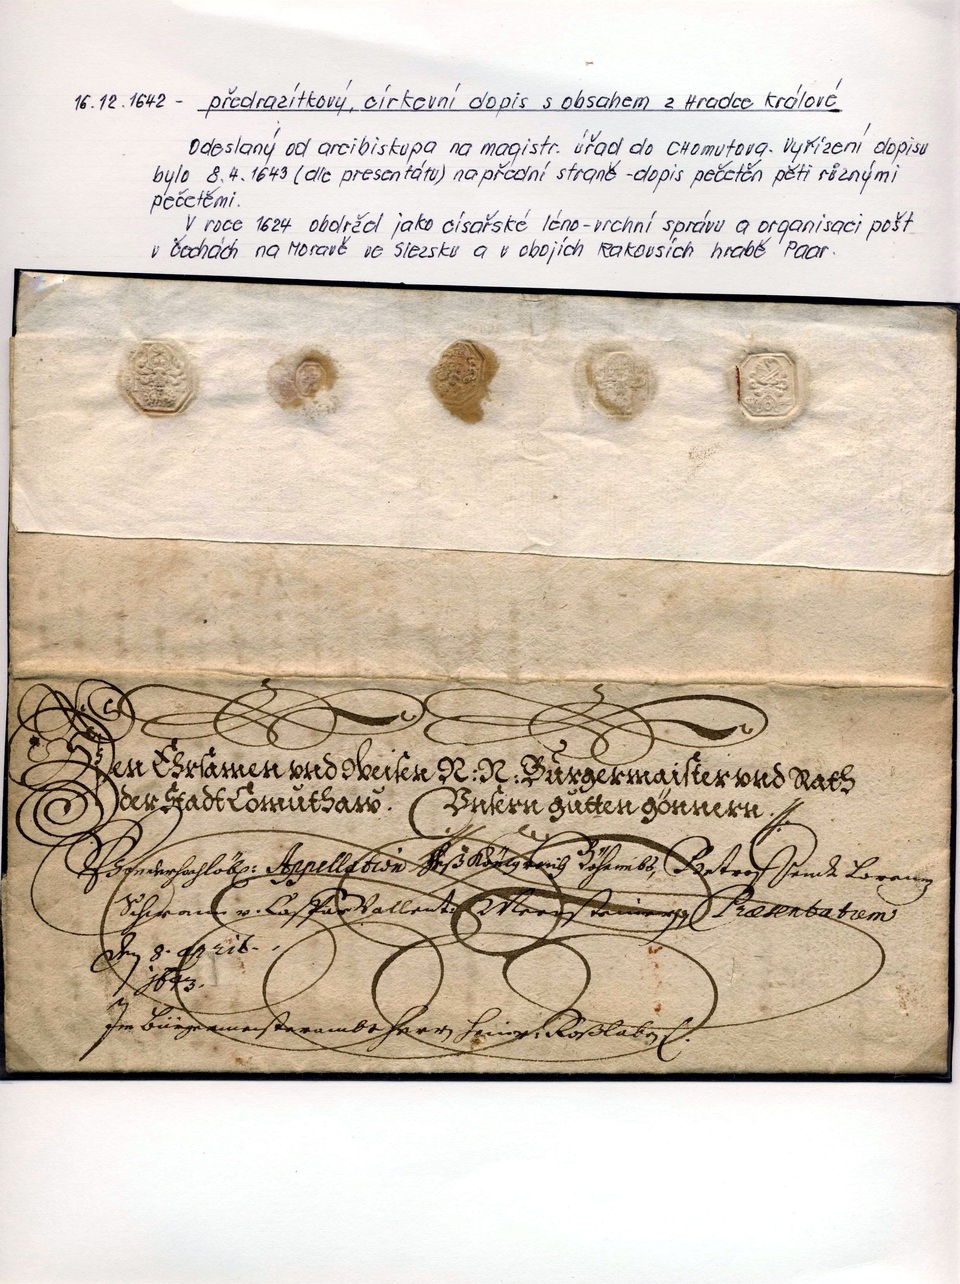 16.12.1642 - předrazítkový, církevní dopis s obsahem z Hradce Králové
Odeslaný od arcibiskupa na magistr. úřad do Chomutova. Vyřízení dopisu
bylo 8.4.1643 (dle presentátu) na přední straně - dopis pečetěn pěti různými
pečetěmi.
V roce 1624 obdržel jako císařské léno - vrchní správu a organisaci pošt
v Čechách na Moravě ve Slezsku a v obojích Rakousích hrabě Paar.
Den Ehrsamen vnd Weisen N: N: Burgermaister vnd Rath
der Stadt Comuthaw. Vnsern gutten gönnern.
Appellation Königreichs Behemb,
Schram v. Præsentatum
den 8. April
1643.
Im Bürgermeisterambt Herr